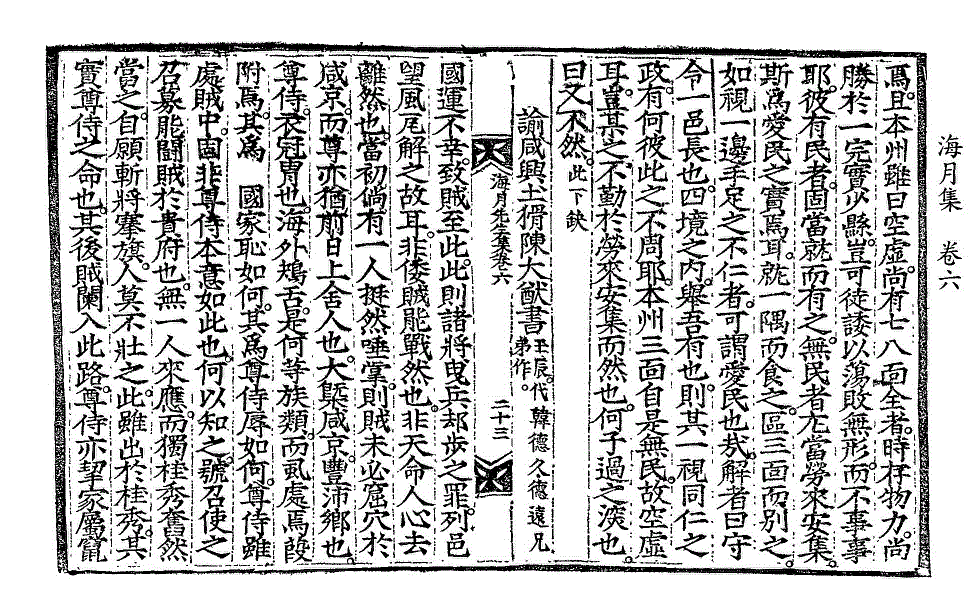 海月集 卷六
焉。且本州雖曰空虛。尚有七八面全者。時存物力。尚
勝於一完實少縣。豈可徒諉以蕩敗無形。而不事事
耶。彼有民者。固當就而有之。無民者。尤當勞來安集。
斯爲愛民之實焉耳。就一隅而食之。區三面而別之。
如視一邊手足之不仁者。可謂愛民也哉。解者曰守
令一邑長也。四境之內。擧吾有也。則其一視同仁之
政。有何彼此之不周耶。本州三面。自是無民。故空虛
耳。豈其之不勤於勞來安集而然也。何子過之深也。
曰又不然。此下缺
諭咸興土猾陳大猷書 壬辰。代韓德久德遠兄弟作。
海月先生集卷六 二十三
國運不幸。致賊至此。此則諸將曳兵却步之罪。列邑
望風瓦解之故耳。非倭賊能戰然也。非天命人心去
離然也。當初倘有一人挺然唾掌。則賊未必窟穴於
咸京。而尊亦猶前日上舍人也。大槩咸京。豐沛鄕也。
尊侍。衣冠冑也。海外鴂舌。是何等族類。而虱處焉。葭
附焉。其爲 國家恥如何。其爲尊侍辱如何。尊侍雖
處賊中。固非尊侍本意如此也。何以知之。號召使之
召募能鬪賊於貴府也。無一人來應。而獨桂秀奮然
當之。自願斬將搴旗。人莫不壯之。此雖出於桂秀。其
實尊侍之命也。其後賊闌入此路。尊侍亦挈家屬竄